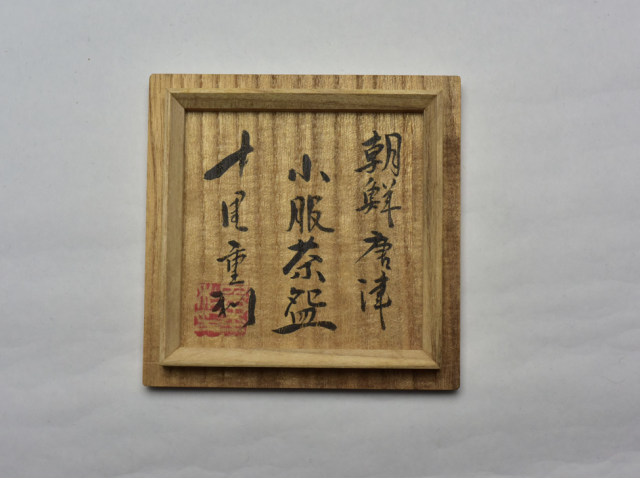 朝鮮唐津
小服茶盌
中里重利